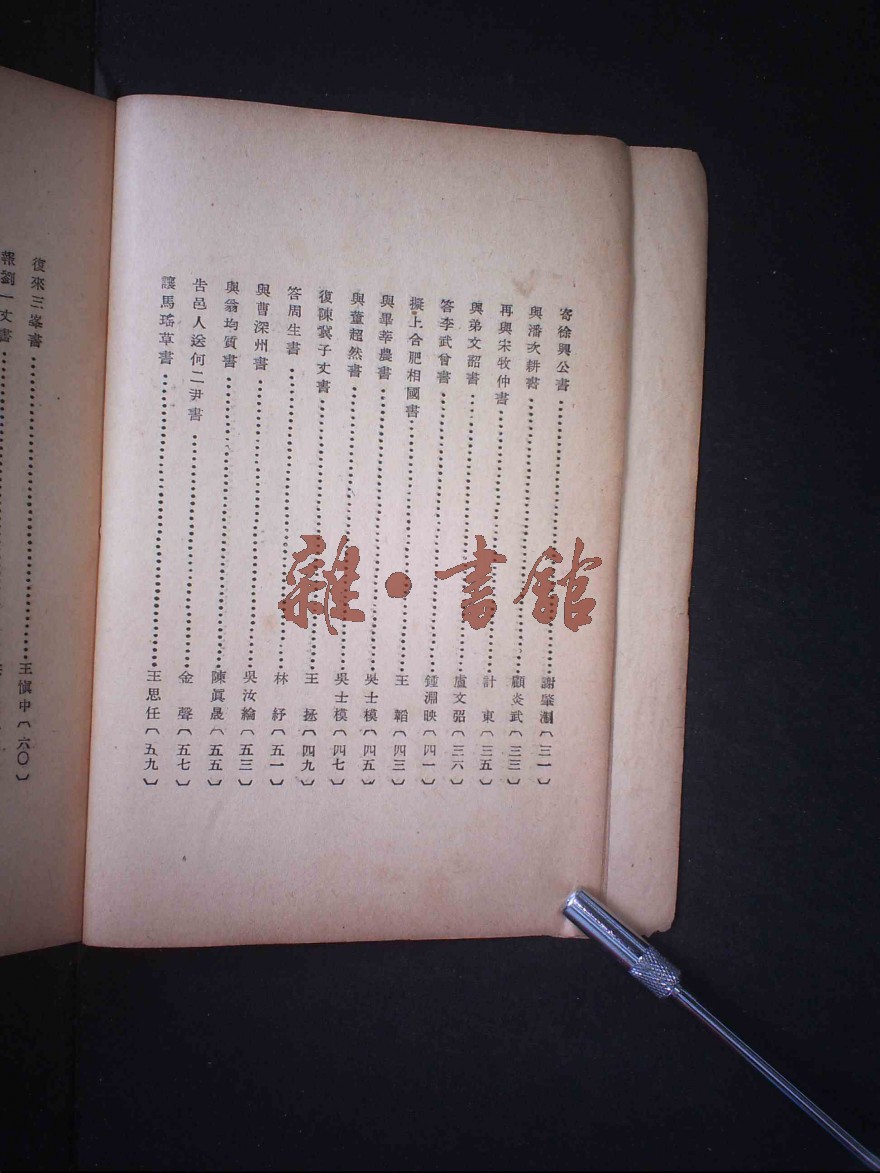 寄徐興公書……謝肇淛〔三一〕
與潘次耕書……顧炎武〔三三〕
再與宋牧仲書……計東〔三五〕
與弟文韶書……盧文弨〔三六〕
答李武曾書……鍾淵映〔四一〕
擬上合肥相國書……王韜〔四三〕
與畢莘農書……吳士模〔四五〕
與董超然書……吳士模〔四七〕
復陳冀子丈書……王拯〔四九〕
答周生書……林紓〔五一〕
與曹深州書……吳汝綸〔五三〕
與翁均質書……陳眞晟〔五五〕
告邑人送何二尹書……金聲〔五七〕
讓馬瑤草書……王思任〔五九〕
復來三峯書……王愼中〔六〇〕
報劉一丈書……
雜·書館